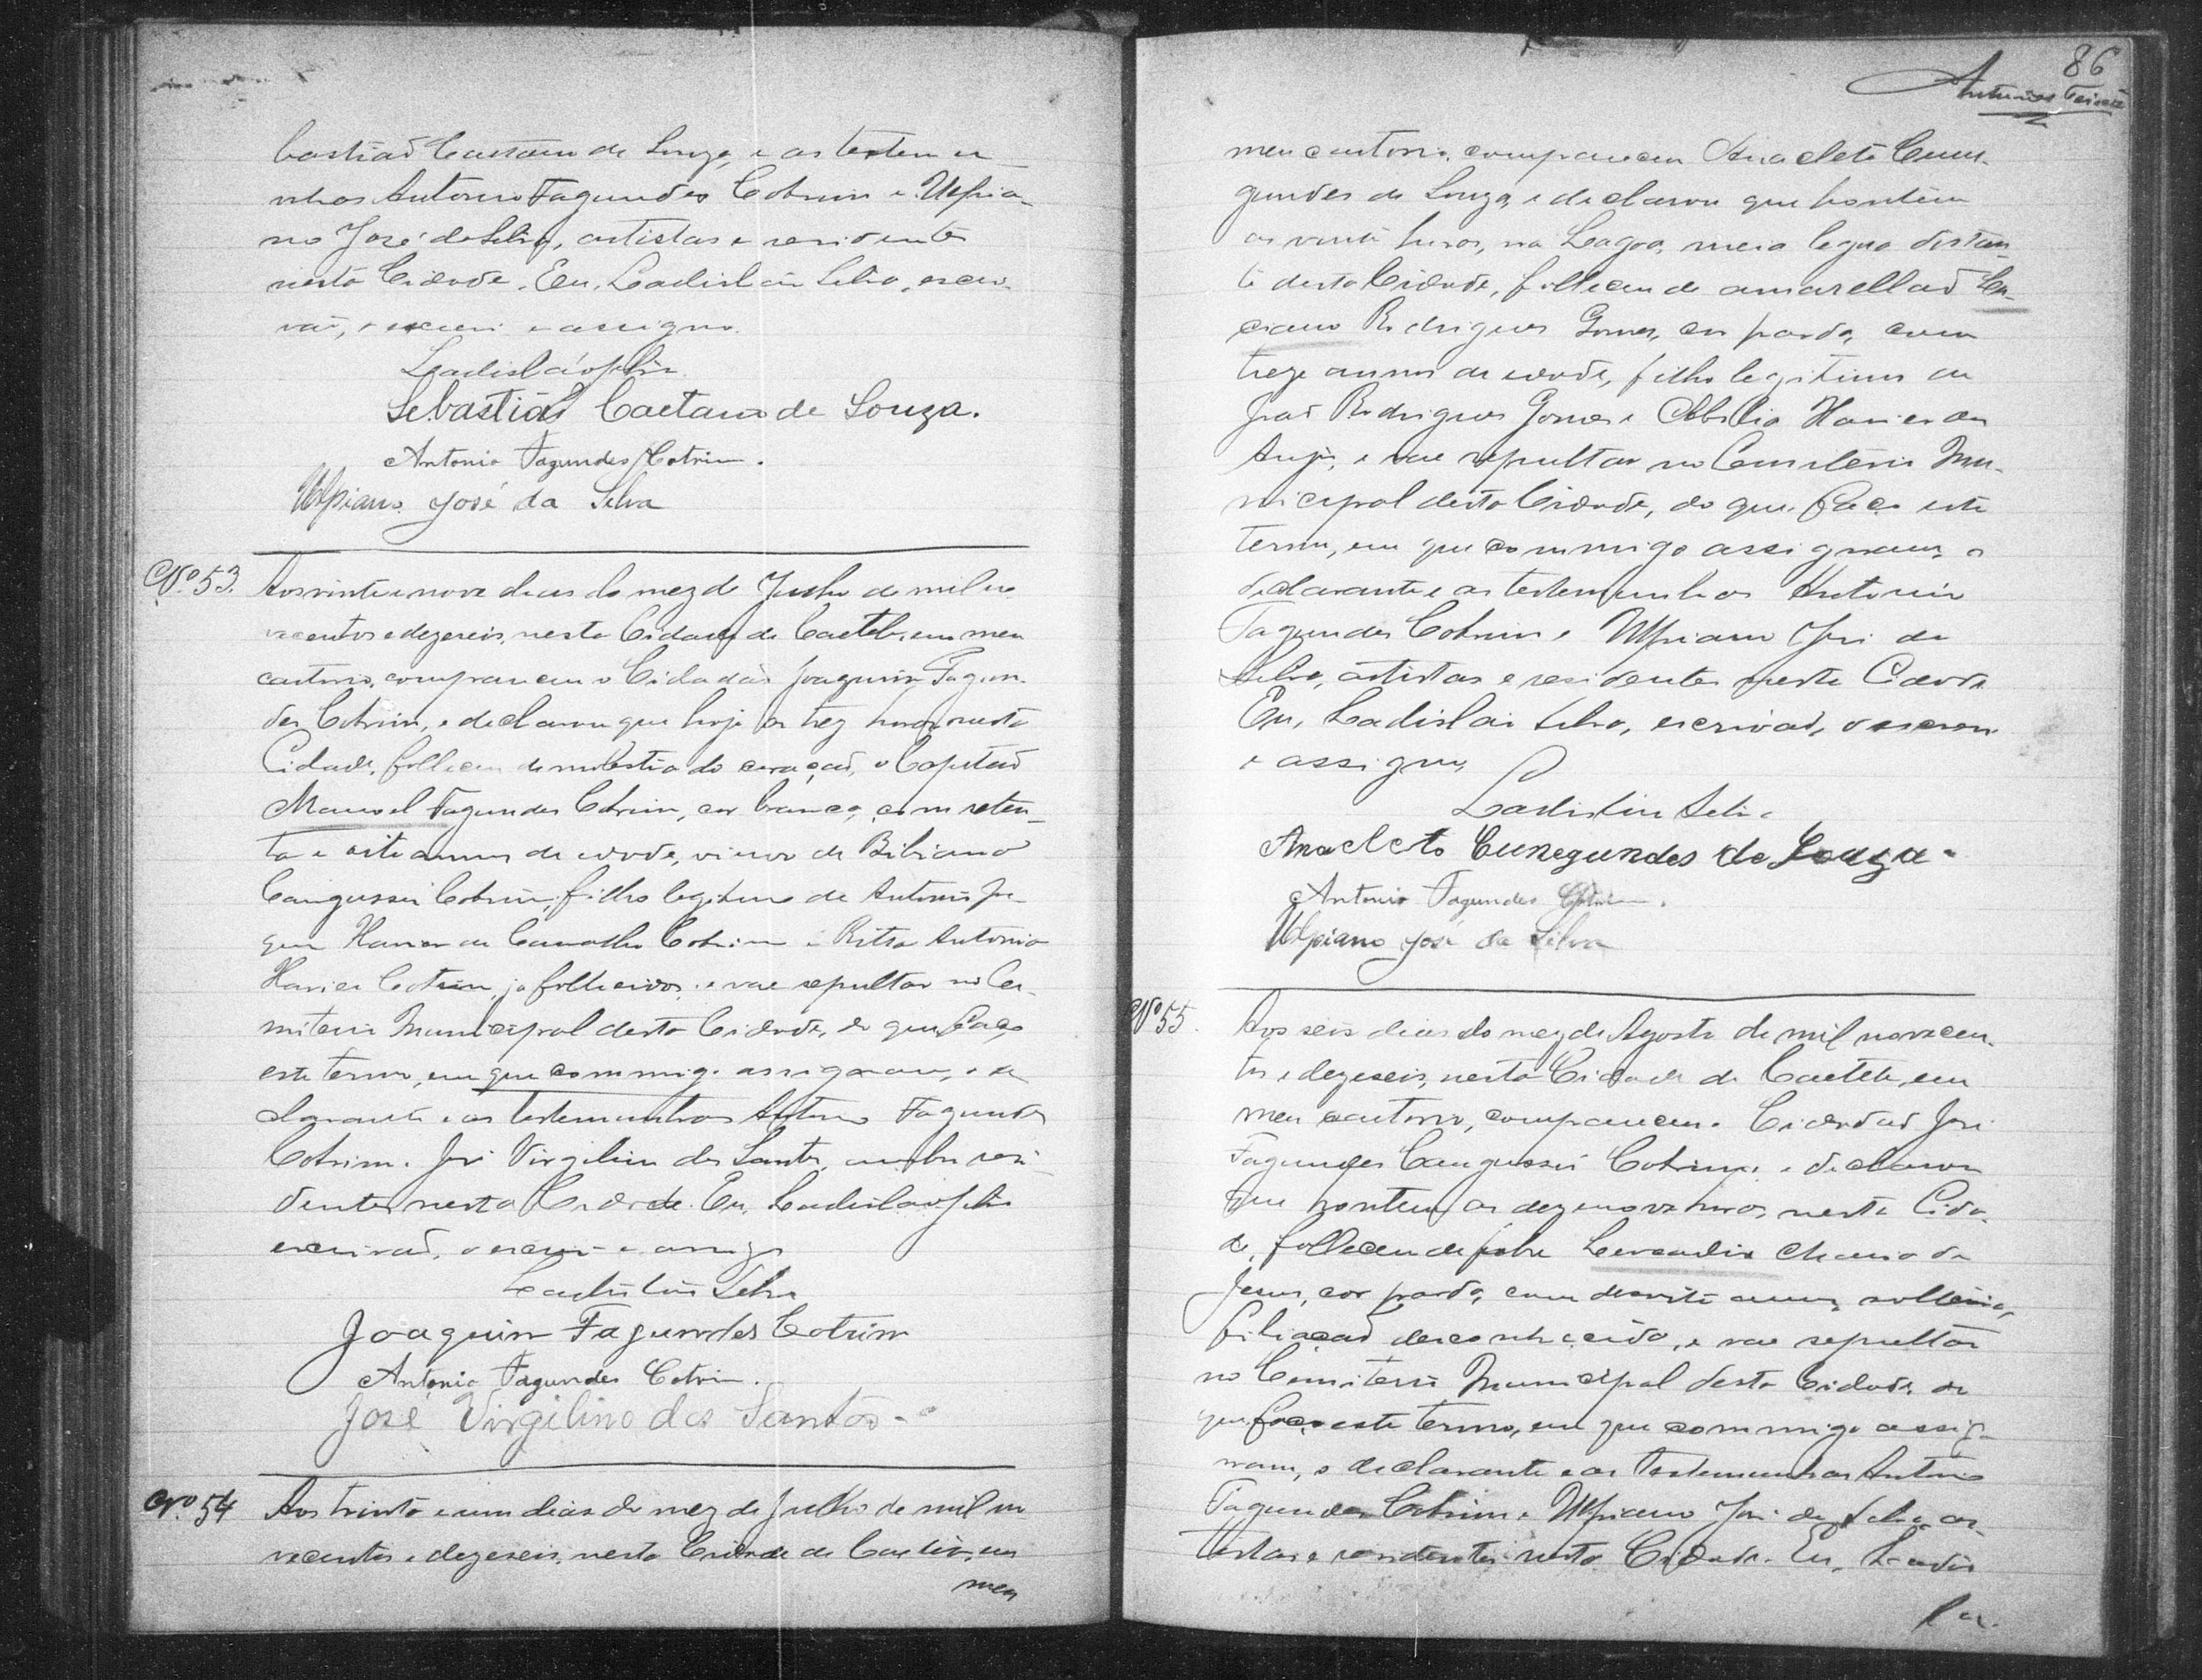 bastião Caetano de Souza, e as testemu
nhas Antonio Fagundes Cotrim e Ulpia-
no José da Silva, artistas e residentes
nesta Cidade. Eu, Ladisláu Silva, escri-
vão, o escrevi e assigno.
Ladisláo Silva
Sebastião Caetano de Souza.
Antonio Fagundes Cotrim.
Ulpiano José da Silva
Nº 53. Aos vinte e nove dias do mez de Julho de mil no
vecentos e dezeseis, nesta Cidade de Caeteté, em meu
cartorio, compareceu o Cidadão Joaquim Fagun-
des Cotrim, e declarou que hoje as trez horas nesta
Cidade, falleceu de molestia do coração, o Capitão
Manoel Fagundes Cotrim, cor branca, com seten-
ta e oito annos de edade, viuvo de Bibiana
Cangussú Cotrim, filho legitimo de Antonio
Xavier de Carvalho Cotrim e Ritta Antonia
Xavier Cotrim, ja fallecidos, e vae sepultar no Ce-
miterio Municipal desta Cidade, do que faço
este termo, em que commigo assignam, o de
clarante e as testemunhas Antonio Fagundes
Cotrim e José Virgilino dos Santos, ambos resi-
dentes nesta Cidade. Eu, Ladislao Silva
escrivão, o escrevi e assigno
Ladisláu Silva
Joaquim Fagundes Cotrim
Antonio Fagundes Cotrim.
José Virgilino dos Santos
Nº 54 Aos trinta e um dias do mez de Julho de mil no
vecentos e dezeseis, nesta Cidade de Caeteté, em
meu
86
Antunes Teixeira
meu cartorio, compareceu Anacleto Cune-
gundes de Souza, e declarou que hontem
as vinte horas, na Lagoa, meia legua distan-
te desta Cidade, falleceu de amarellão
ciano Rodrigues Gomes, cor parda, com
treze annos de edade, filho legitimo de
João Rodrigues Gomes e Abilia Xavier de
Anjo, e vae sepultar no Cemiterio Mu-
nicipal desta Cidade, do que faço este
termo, em que commigo assignam, o
declarante e as testemunhas Antonio
Fagundes Cotrim e Ulpiano José da
Silva, artistas e residentes nesta Cidade
Eu, Ladislau Silva, escrivão, o escrevi
e assigno
Ladislau Silva
Anacleto Cunegundes de Souza
Antonio Fagundes Cotrim.
Ulpiano José da Silva
Nº 55. Aos seis dias do mez de Agosto de mil novecen-
tos e dezeseis, nesta Cidade de Caeteté, em
meu cartorio, compareceu o Cidadão José
Fagundes Cangussú Cotrim, e declarou
que hontem as dezenove horas, nesta Cida-
de, falleceu de febre Leocadia Maria de
Jesus, cor parda, com desoito annos, solteira,
filiação desconhecida, e vae sepultar
no Cemiterio Municipal desta Cidade, do
que faço este termo, em que commigo assig-
nam, o declarante e as testemunhas Antonio
Fagundes Cotrim e Ulpiano José da Silva, ar-
tistas e residentes nesta Cidade. Eu, Ladis
lau.